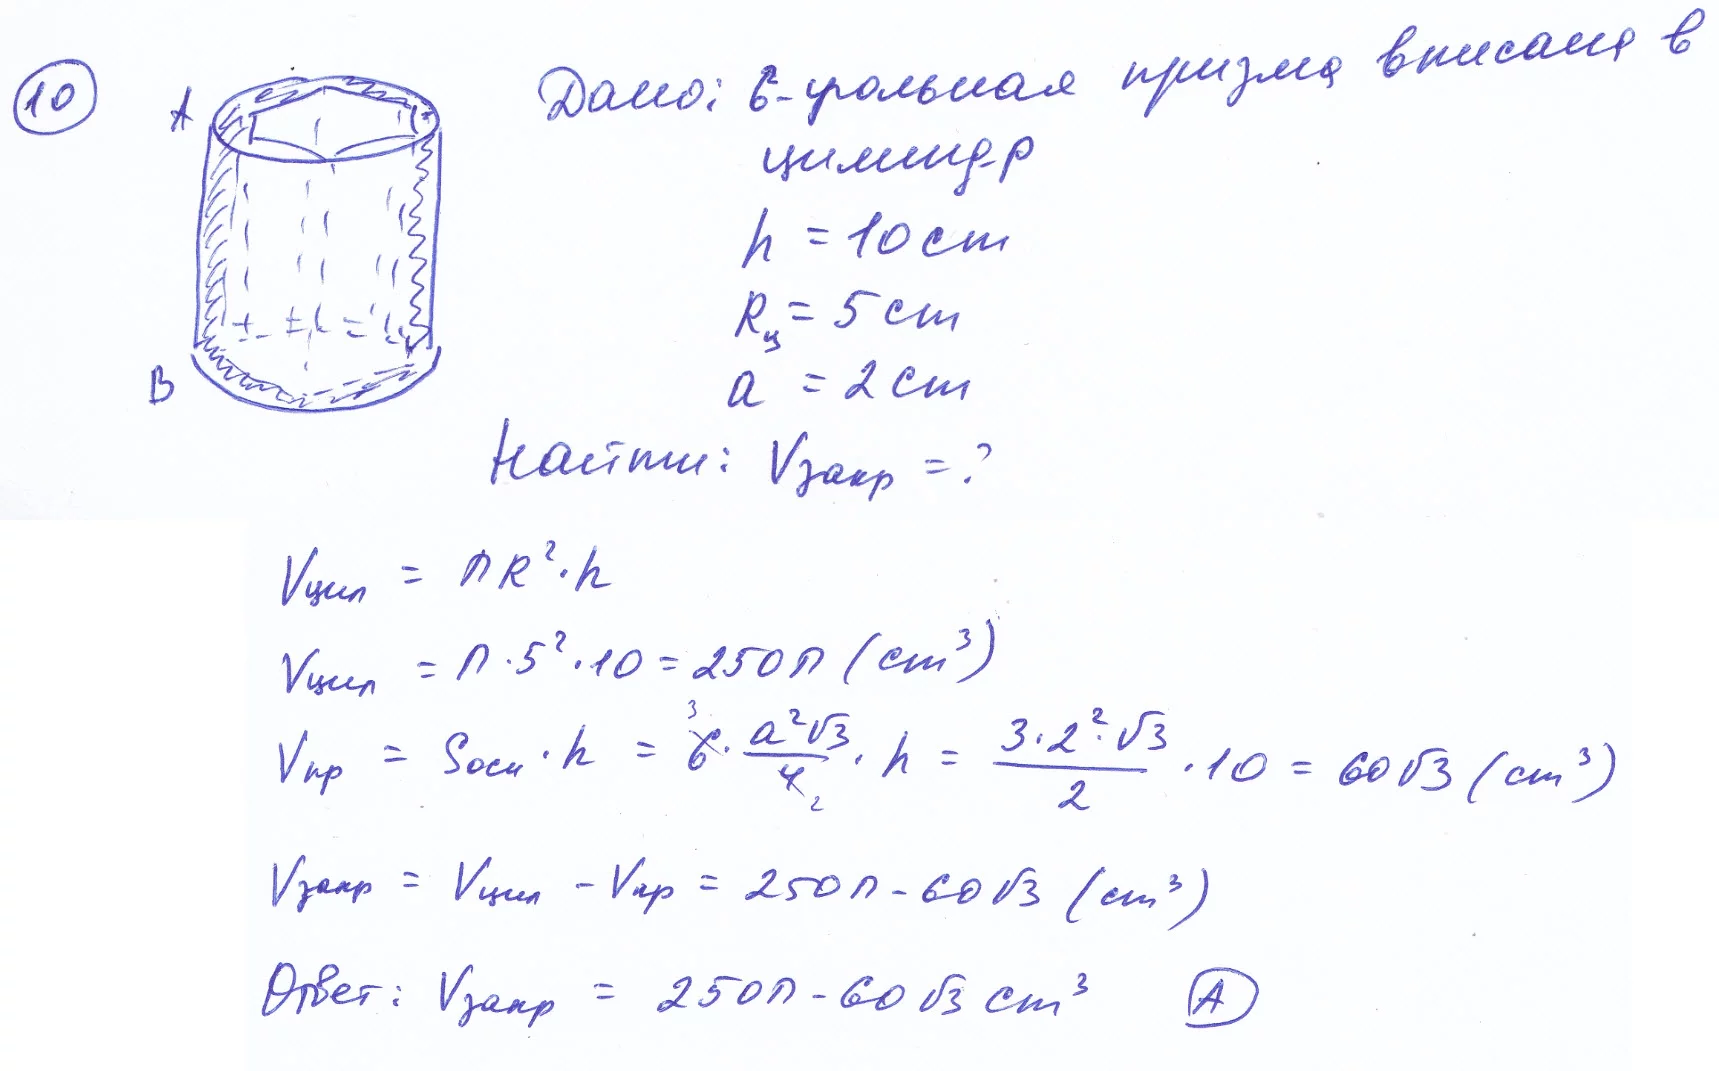 10
A
B
Дано: 6-угольная призма вписана в
цилиндр
h = 10 cm
Rц = 5 cm
a = 2 cm
Найти: Vзакр = ?
Vцил = πR²·h
Vцил = π·5²·10 = 250π (cm³)
Vпр = Sосн·h = 6·a²√3/4·h = 3·2²·√3/2·10 = 60√3 (cm³)
Vзакр = Vцил - Vпр = 250π - 60√3 (cm³)
Ответ: Vзакр = 250π - 60√3 cm³ A